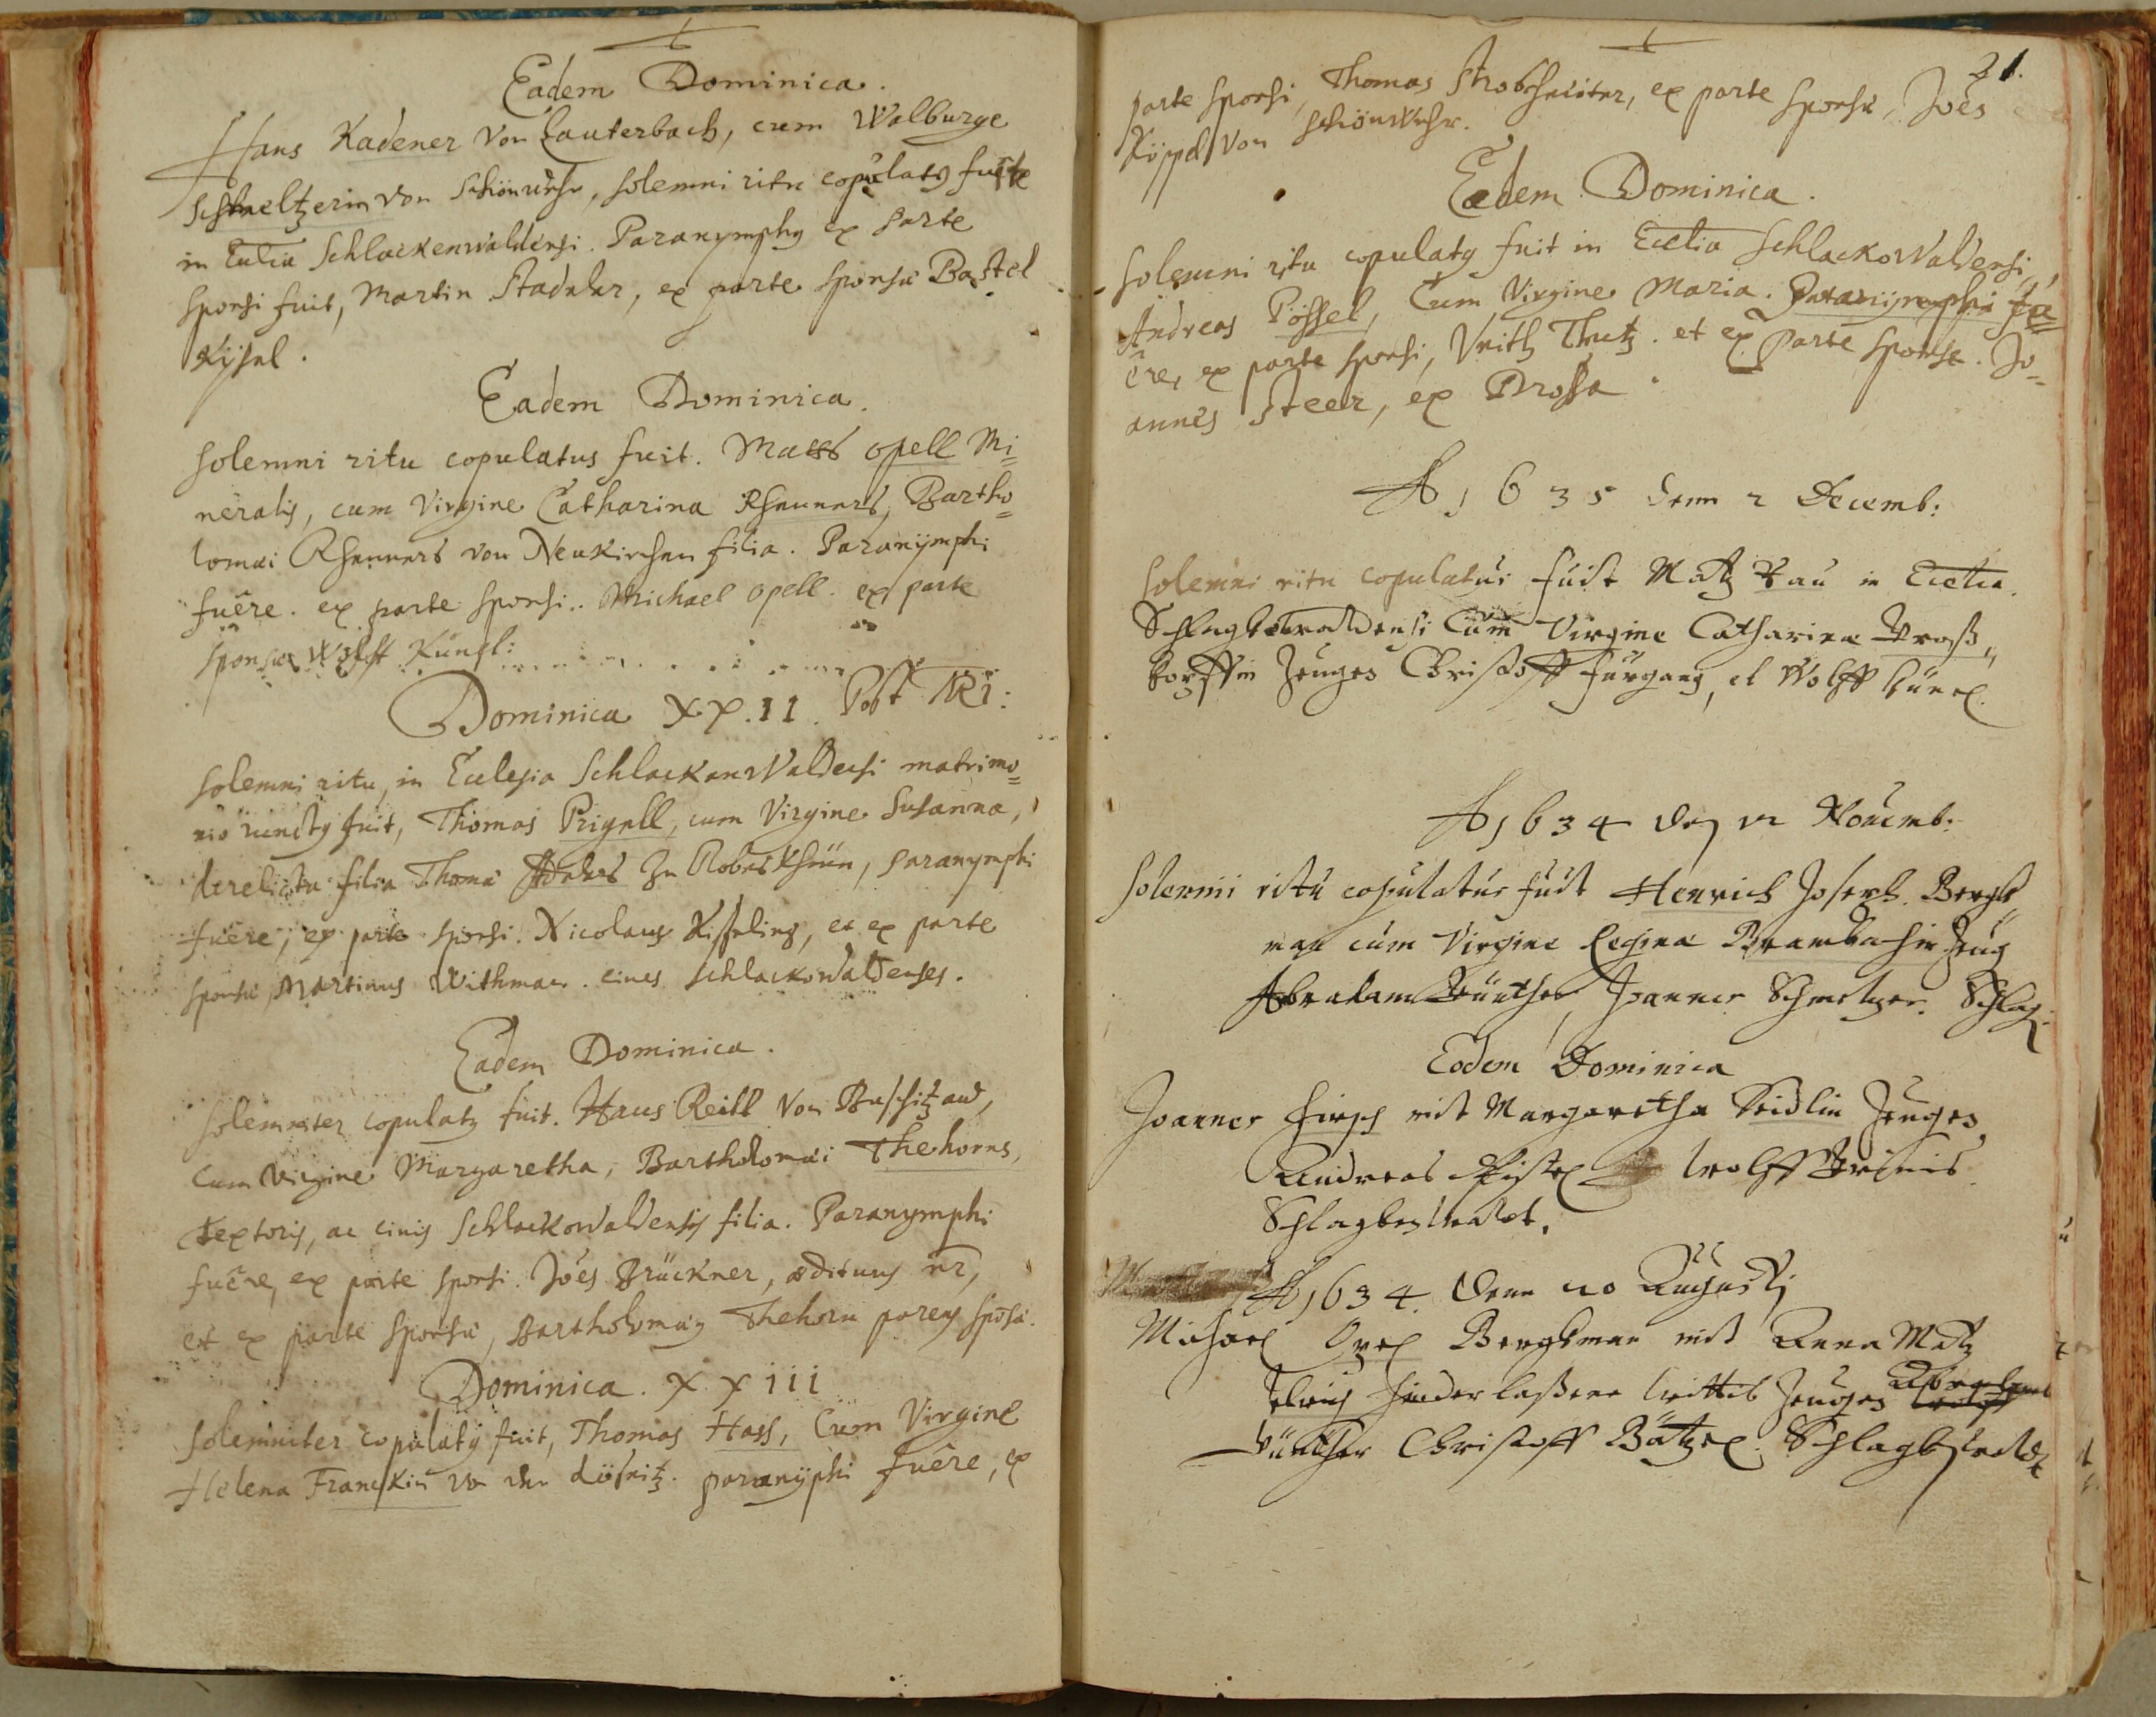 Eadem Dominica.
Hans Kadener von Lauterbach, cum Walburge
Schmeltzerin von Schönwehr, solemni ritu copulatg fuit
in Eccia Schlackenwaldensi. Paranymphg ex parte
sponsi fuit, Martin Stadeler, ex parte sponsæ Bastel
Kysel.
Eadem Dominica.
solemni ritu copulatus fuit. Matts opell Mi=
neralis, cum Virgine Catharina Rhenners, Bartho=
lomæi Rhenners von Neukirchen filia. Paranymphi
fuêre. ex parte sponsi. Michael opell. ex parte
sponsæ Wolff Küncl:
Dominica XX.II. Post TRI:
solemni ritu, in Ecclesia Schlackenwaldensi matrimo=
nio iunctg fuit, Thomas Prigell, cum Virgine Susanna,
derelicta filia Thomæ zu Robeskhrün, paranymphi
fuêre, ex parte sponsi. Nicolaus Kisseling, et ex parte
sponsæ, Martinus Withman. ciues Schlackowaldenses.
Eadem Dominica.
solemniter copulatg fuit. Hans Reitt von Buschitzaw,
cum Virgine Margaretha, Bartholomæi Thehorns,
textoris, ac ciuis Schlackowaldensis filia. Paranymphi
fuêre, ex parte sponsi. Joes Brückner, ædituus nr,
et ex parte sponsæ, Bartholomæg Thehorn parens sposæ.
Dominica. X X III
solemniter copulatg fuit, Thomas Hass, Cum Virgine
Helena Franckin von der Lösnitz. paranyphi fuêre, ex
21.
parte sponsi, Thomas Strobschneiter, ex parte sponsæ, Joes
Köppel von Schönwehr.
Eadem Dominica.
solemni ritu copulatg fuit in Eccia Schlackowaldensi,
Andreas Pössel, Cum Virgine Maria. Paranymphi fu=
êre, ex parte sponsi, Veith Thetz. et ex parte sponsæ. Jo=
annes Steer, ex Drossa.
A 1635 denn 2 Decemb:
solemni ritu copulatus fuist Matz Bau in Eccia.
Schlagkewaldensi Cum Virgine Catharina
Zeuges Christoff Fürgang, et Wolff Künel.
A 1634 den 12 Nouemb:
solemni ritu copulatus fuist Henrich Joseph. Bergk
man cum Virgine Regina Brambachin Zeug
Abraham Günther, Joannes Schmeltzer. Schlag.
Eodem Dominica
Joannes Hirsch mit Margaretha Seidlin Zeuges
Andreas Pistel Wolff
Schlagkenwalet.
A 1634. Denn 20 Augusti
Michael Opel Bergkman mit Anna Matz
hinderlassene wittib Zeuges Abraham
Günther Christoff Bätzel. Schlagkewaldt